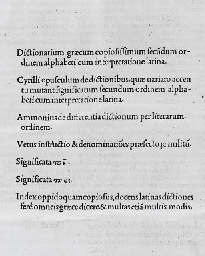 Dictionarium græcum copiosissimum secūdum or-
dinem alphabeti cum interpretatione latina.
Cyrilli opusculum de dictionibus, quæ uariato accen-
tu mutant significatum secundum ordinem alpha-
beti cum interpretatione latina.
Ammonius de differentia dictionum per literarum
ordinem.
Vetus instructio & denominationes præfectorum militū.
Significata
Significata
Index oppido quam copiosus, docens latinas dictiones
ferè omnes græce dicere & multas etiā multis modis.